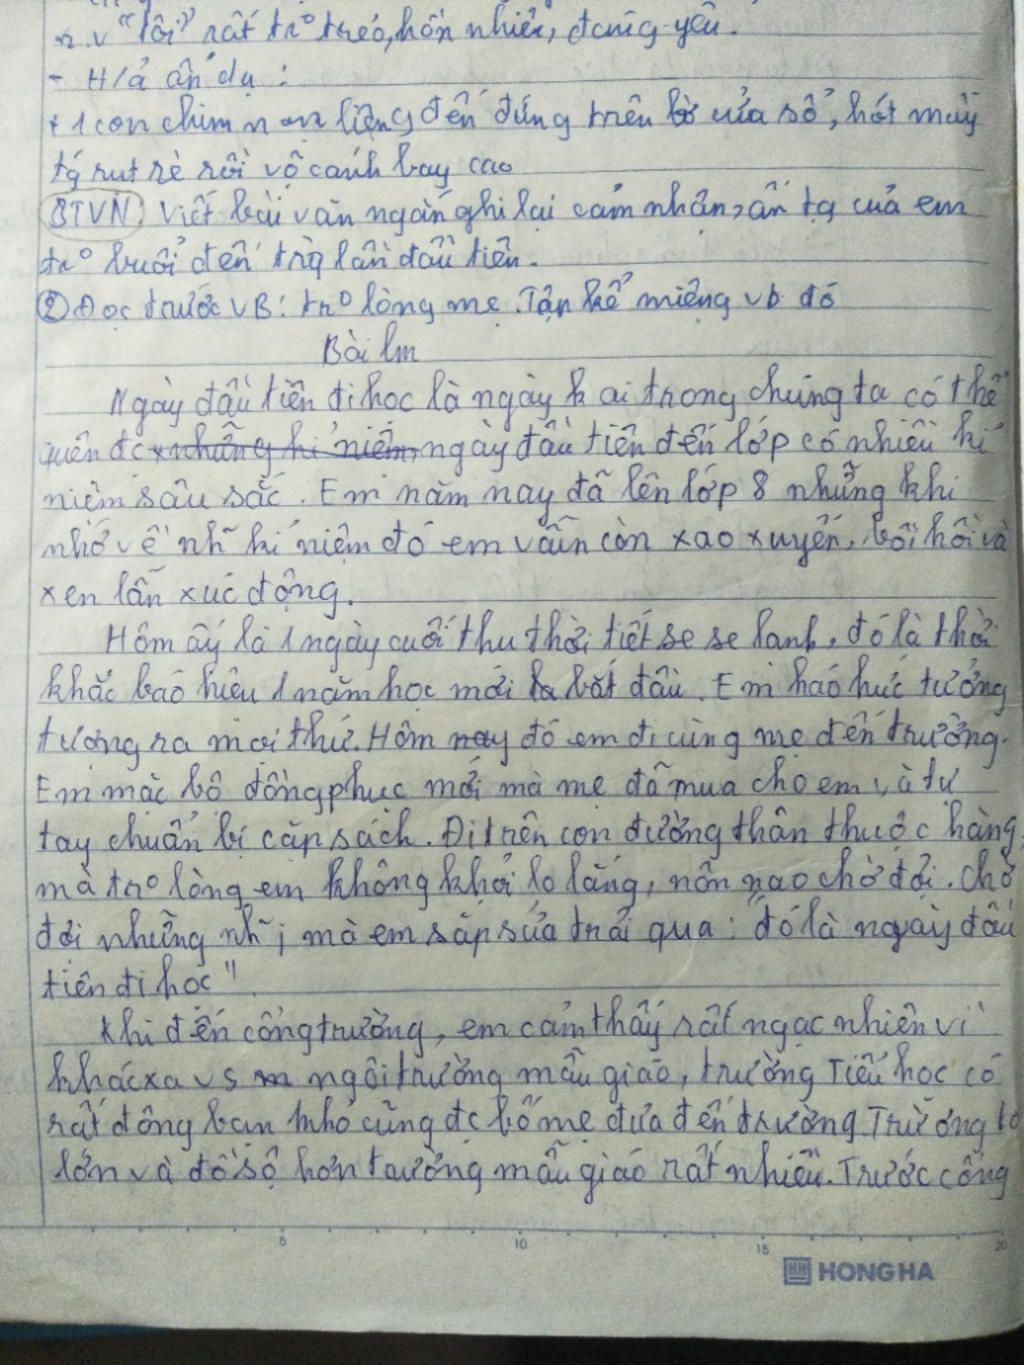 n.v "tôi" rất tr⁰ trẻo, hồn nhiên, đáng yêu.
- H/ả ẩn dụ :
+ 1 con chim non liệng đến đứng trên bờ cửa sổ, hót mấy
tg rụt rè rồi vỗ cánh bay cao
BTVN Viết bài văn ngắn ghi lại cảm nhận, ấn tg của em
tr⁰ buổi đến trg lần đầu tiên.
② Đọc trước VB: tr⁰ lòng mẹ. Tập kể miệng vb đó
Bài lm
Ngày đầu tiên đi học là ngày k ai trong chúng ta có thể
quên đc những kỉ niệm, ngày đầu tiên đến lớp có nhiều kỉ
niệm sâu sắc. Em năm nay đã lên lớp 8 nhưng khi
nhớ về nh~ kỉ niệm đó em vẫn còn xao xuyến, bồi hồi và
xen lẫn xúc động.
Hôm ấy là 1 ngày cuối thu thời tiết se se lạnh, đó là thời
khắc báo hiệu 1 năm học mới bắt đầu. Em háo hức tưởng
tượng ra mọi thứ. Hôm nay đó em đi cùng mẹ đến trường.
Em mặc bộ đồng phục mới mà mẹ đã mua cho em và tự
tay chuẩn bị cặp sách. Đi trên con đường thân thuộc hàng
mà tr⁰ lòng em không khỏi lo lắng, nôn nao chờ đợi. Chờ
đợi những nh~ j mà em sắp sửa trải qua: "đó là ngày đầu
tiên đi học".
Khi đến cổng trường, em cảm thấy rất ngạc nhiên vì
khác xa vs ngôi trường mẫu giáo, trường Tiểu học có
rất đông bạn nhỏ cũng đc bố mẹ đưa đến trường. Trường to
lớn và đồ sộ hơn trường mẫu giáo rất nhiều. Trước cổng
5 10 15 20
HONG HA